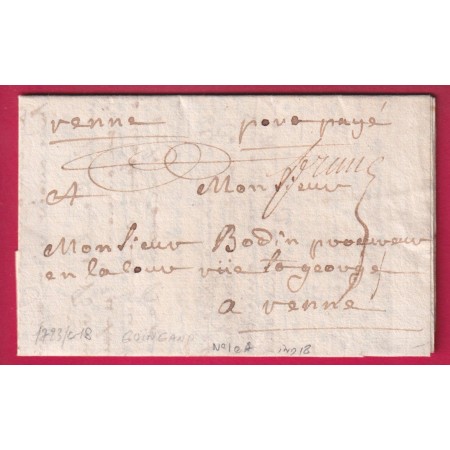 renne port payé
franc
A Monsieur
Monsieur Bodin procureur
en la cour rüe st george
a renne
1793/618 GUINGAMP
N° 128 14918